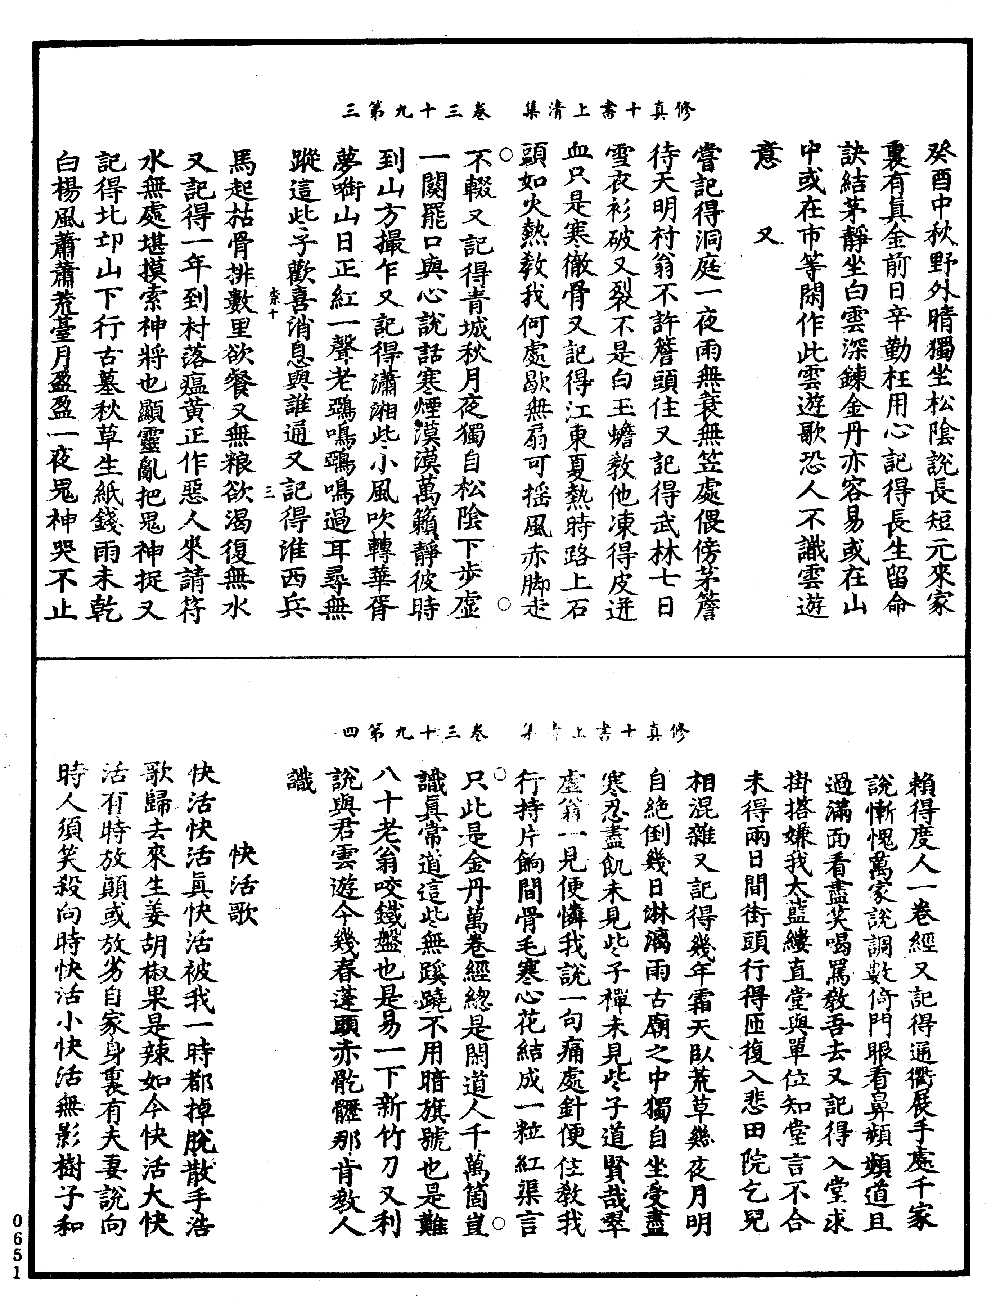 修真十書上清集　卷三十九第三
癸酉中秋野外晴獨坐松陰說長短元來家
裏有真金前日辛勤枉用心記得長生留命
訣結茅靜坐白雲深鍊金丹亦容易或在山
中或在市等閑作此雲遊歌恐人不識雲遊
意　又
嘗記得洞庭一夜雨無蓑無笠處偎傍茅簷
待天明村翁不許簷頭住又記得武林七日
雪夜衫破又裂不是白玉蟾教他凍得皮迸
血只是寒徹骨又記得江東夏熱時路上石
頭如火熱教我何處歇無扇可搖風赤脚走
不輟又記得青城秋月夜獨自松陰下步虛
一闋罷口與心說話寒煙漠漠萬籟靜彼時
到山方撮乍又記得瀟湘些小風吹轉華胥
夢㘅山日正紅一聲老鴉鳴鴉鳴過耳尋無
蹤這些子歡喜消息與誰通又記得淮西兵
柰十　三
馬起枯骨排數里欲餐又無粮欲渴復無水
又記得一年到村落瘟黃正作惡人來請符
水無處堪摸索神將也顯靈亂把鬼神捉又
記得北邙山下行古墓秋草生紙錢雨未乾
白楊風蕭蕭荒臺月盈盈一夜鬼神哭不止
修真十書上清集　卷三十九第四
賴得度人一卷經又記得通衢展手處千家
說慚愧萬家說調數倚門眼看鼻頻頻道且
過滿面看盡笑喝罵教吾去又記得入堂求
掛搭嫌我太藍縷直堂與單位知堂言不合
未得兩日間街頭行得匝復入悲田院乞兒
相混雜又記得幾年霜天臥荒草幾夜月明
自絕倒幾日淋漓雨古廟之中獨自坐受盡
寒忍盡飢未見些子禪未見些子道賢哉翠
虛翁一見便憐我說一句痛處針便住教我
行持片餉間骨毛寒心花結成一粒紅渠言
只此是金丹萬卷經總是閑道人千萬箇豈
識真常道這些無蹊蹺不用暗旗號也是難
八十老翁咬鐵盤也是易一下新竹刀又利
說與君雲遊今幾春蓬頭赤骹髏那肯教人
識
快活歌
快活快活真快活被我一時都掉脫散手浩
歌歸去來生姜胡椒果是辣如今快活大快
活有時放顛或放劣自家身裏有夫妻說向
時人須笑殺向時快活小快活無影樹子和
0651